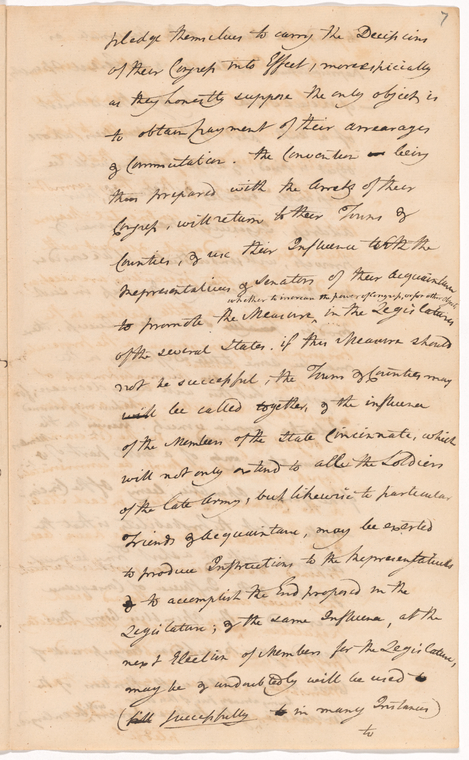 7
pledge themselves to carry the Decisions
of their Congress into Effect, more especially
as they honestly suppose the only object is
to obtain payment of their arrearages
& Commutation. the Convention being
thus prepared with the of their
Congress, will return to their Towns &
Counties, & use their Influence with the
Representatives & Senators of their acquaintance
whether to increase the power of Congress, or for other
to promote the Measure, in the Legislatures
of the several States. if this Measure should
not be successful, the Towns & Counties may
will be called together, & the influence
of the Members of the State Cincinnati, which
will not only extend to all the Soldiers
of the late Army, but likewise to particular
Friends & Acquaintance, may be exerted
to produce Instructions to the Representatives
to accomplish the End proposed in the
Legislature; & the same Influence, at the
next Election of Members for the Legislature,
may be & undoubtedly will be used
( successfully in many Instances)
to